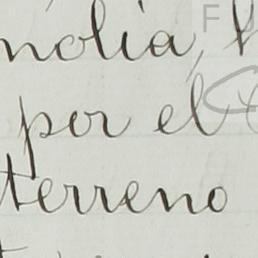 nolia,
por el
terreno